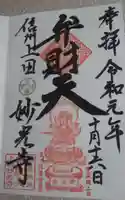 奉拝
令和元年
十月十六日
弁財天
信州上田
妙光寺